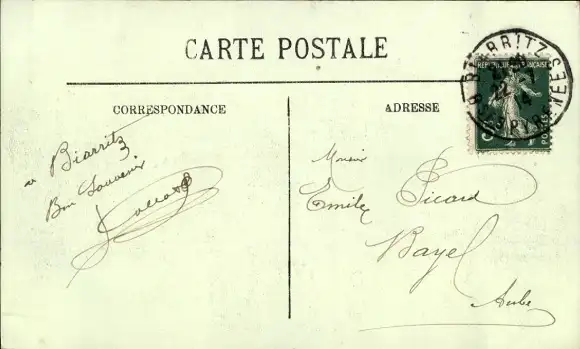 CARTE POSTALE
CORRESPONDANCE
Biarritz
Bon Souvenir
ADRESSE
Emile Picard
Bayel
Aube
BIARRITZ
RÉPUBLIQUE FRANÇAISE
POSTES